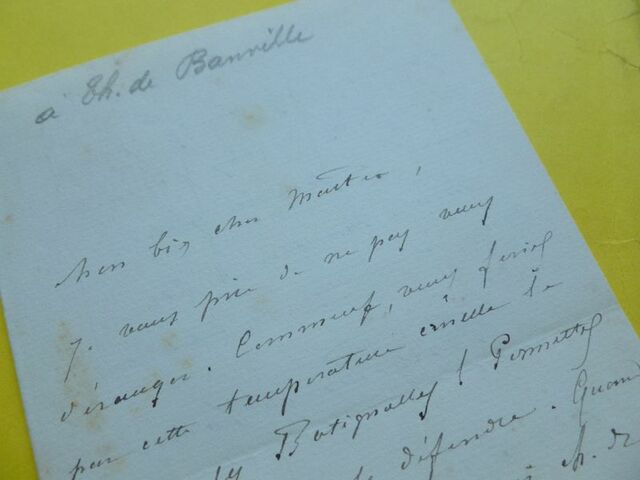 à Th. de Banville
Mon bien cher Maître,
Je vous prie de ne pas vous
déranger. Comment, vous feriez
par cette température cruelle le
Batignolles ! Permettez
défendre. Quand
M. de